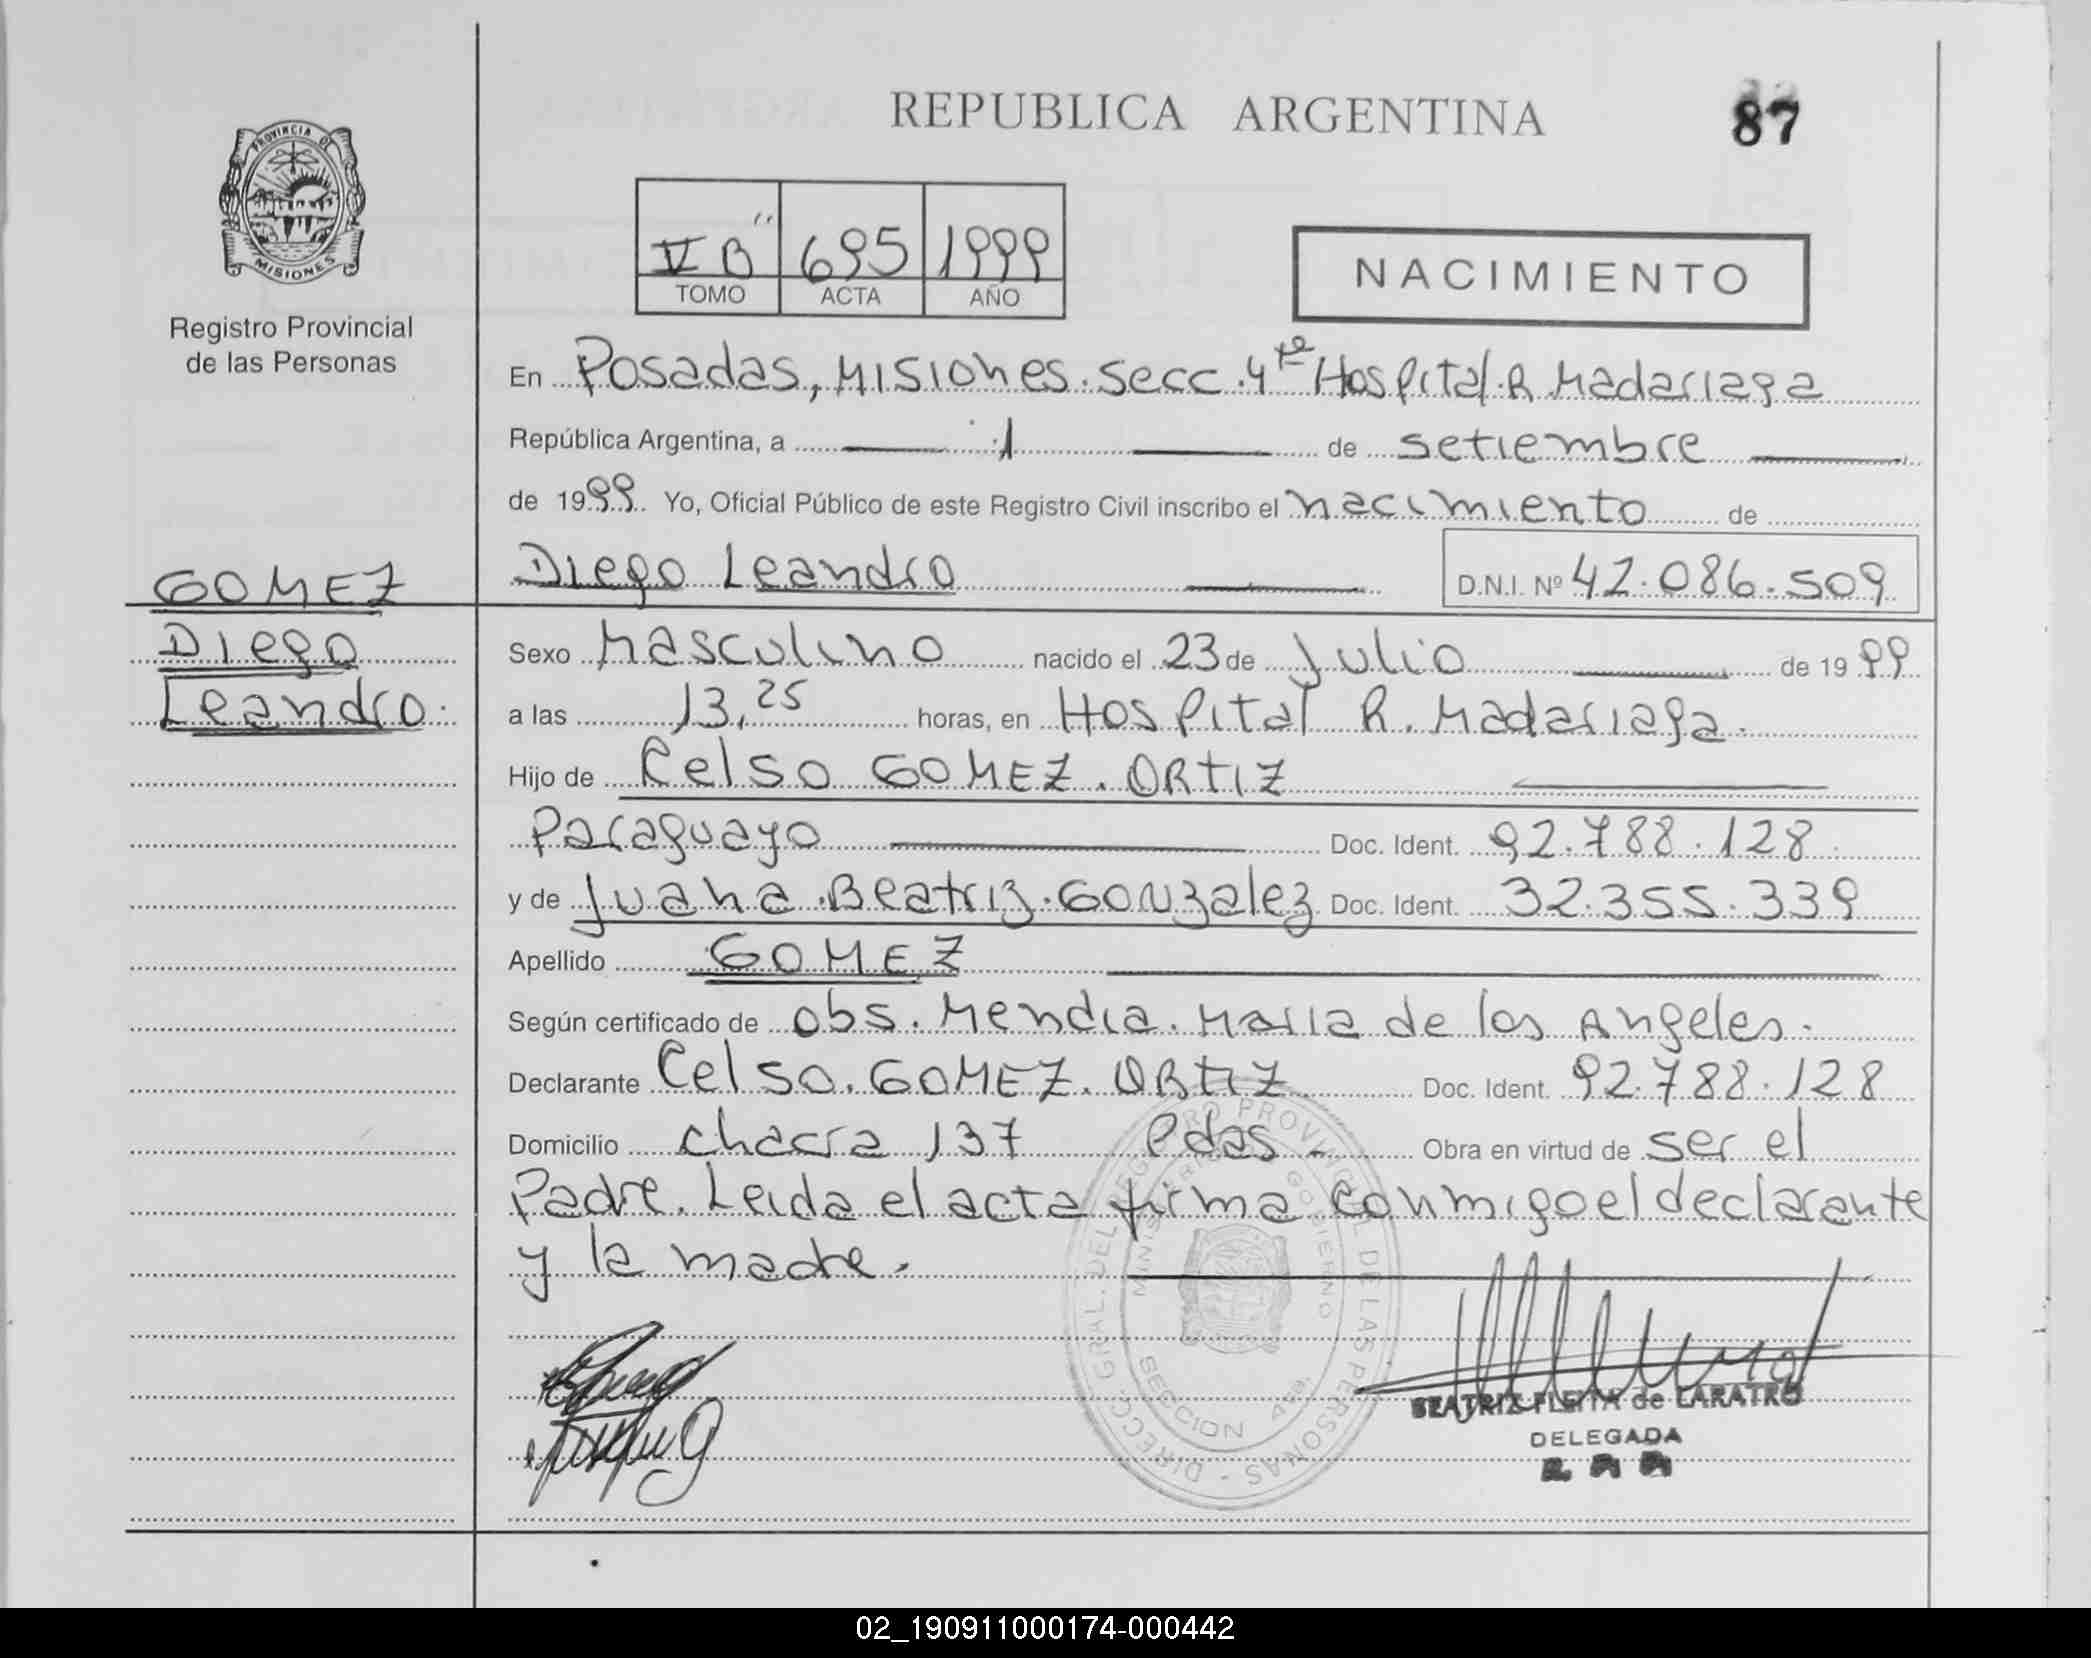 REPUBLICA ARGENTINA
87
PROVINCIA DE
MISIONES
Registro Provincial
de las Personas
V B" 695 1999
TOMO ACTA AÑO
NACIMIENTO
En Posadas, Misiones. secc. 4ta Hospital. R. Madariaga
República Argentina, a 1 de setiembre
de 1999. Yo, Oficial Público de este Registro Civil inscribo el nacimiento de
GOMEZ
Diego Leandro D.N.I. Nº 42.086.509
Diego
Leandro.
Sexo Masculino nacido el 23 de Julio de 1999
a las 13,25 horas, en Hospital R. Madariaga.
Hijo de Celso GOMEZ. ORTIZ
Paraguayo Doc. Ident. 92.788.128
y de Juana. Beatriz. Gonzalez Doc. Ident. 32.355.339
Apellido GOMEZ
Según certificado de Obs. Mendia. Maria de los Angeles.
Declarante Celso. GOMEZ. ORTIZ Doc. Ident. 92.788.128
Domicilio chacra 137 Pdas. Obra en virtud de ser el
Padre. Leida el acta firma conmigo el declarante
y la madre.
DIRECC. GRAL. DEL REGISTRO PROVINCIAL DE LAS PERSONAS
MINISTERIO GOBIERNO
SECCION 4ta.
BEATRIZ FLEITA de LARATRO
DELEGADA
02_190911000174-000442